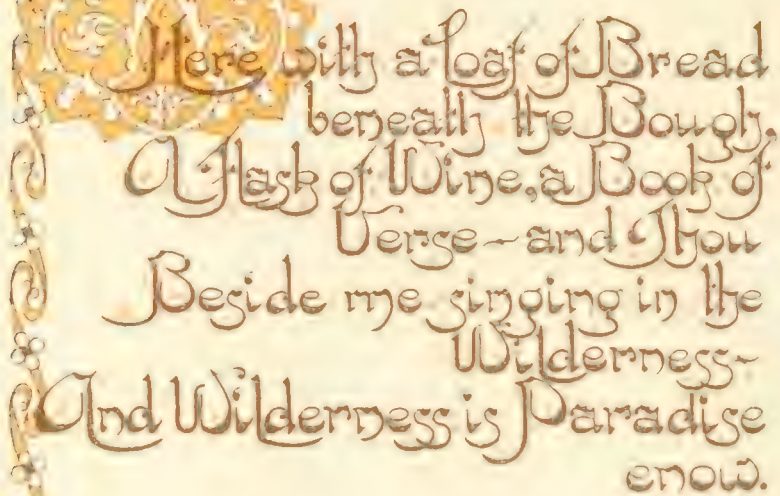 Here with a Loaf of Bread
beneath the Bough,
A Flask of Wine, a Book of
Verse—and Thou
Beside me singing in the
Wilderness-
And Wilderness is Paradise
enow.